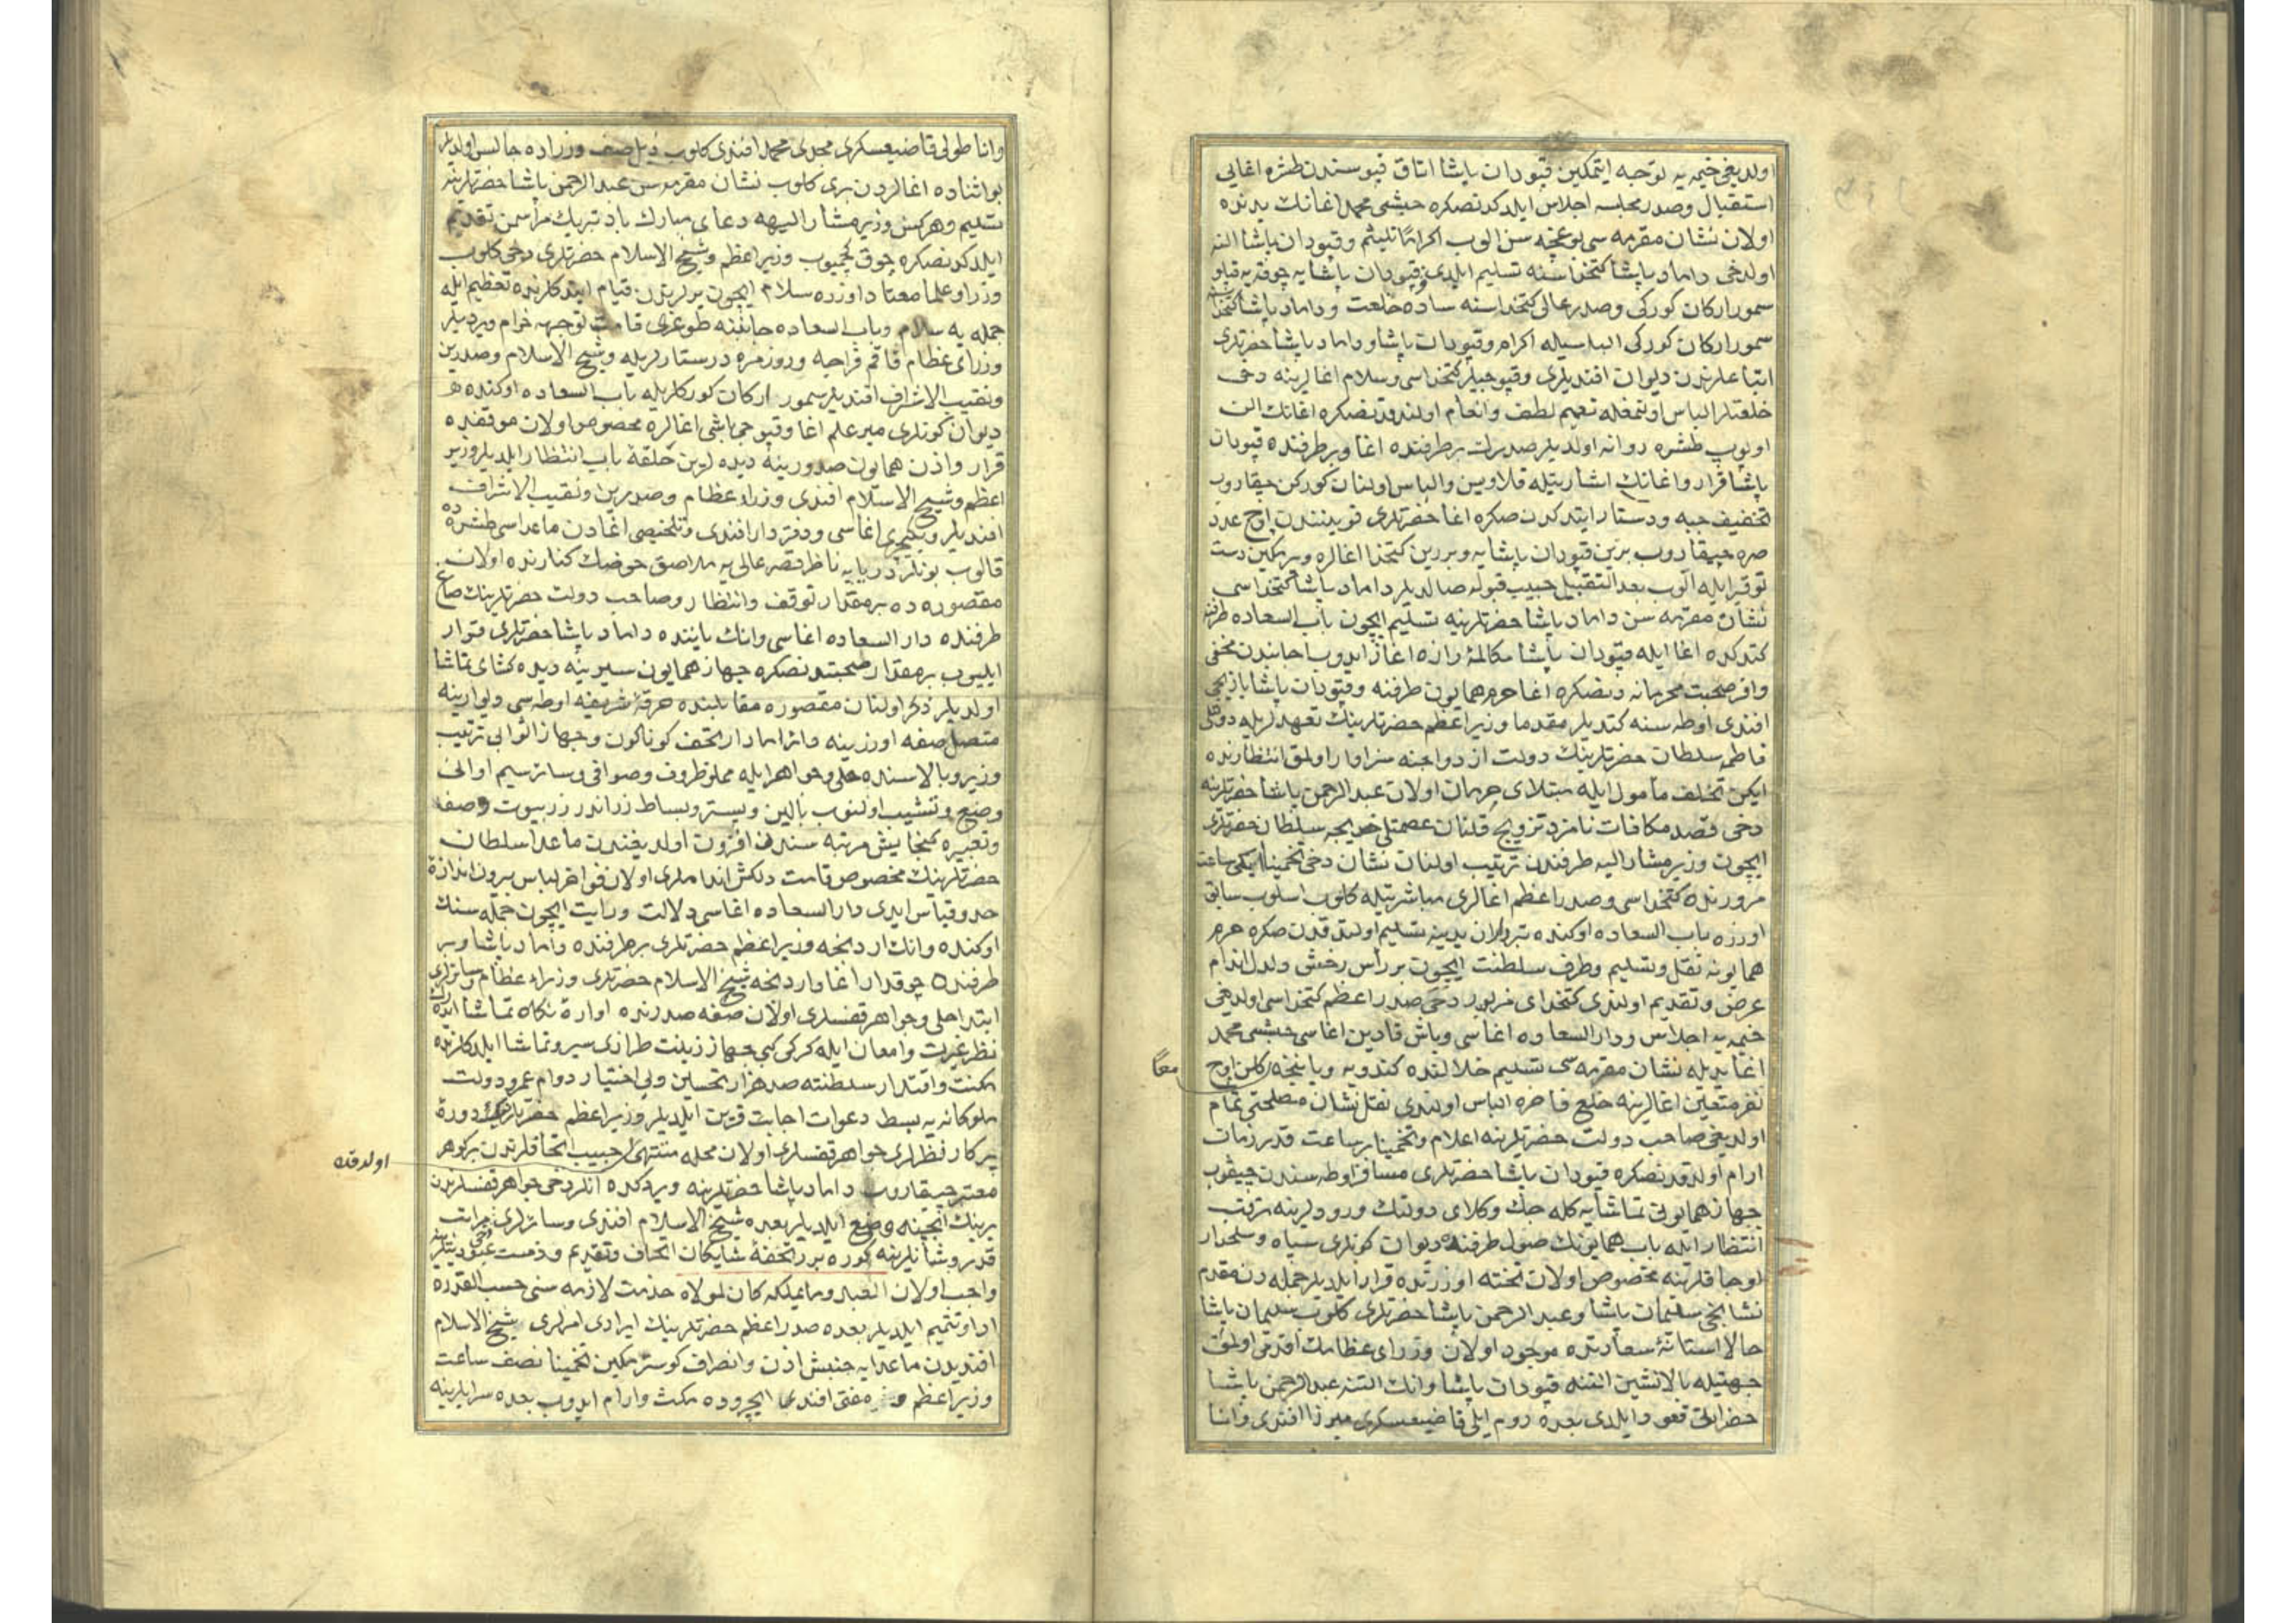 اولدیغی خیمه‌یه توجه ایتمکین قپودان پاشا اتاق قپوسندن طشره اغایی
استقبال وصدر مجلسه اجلاس ایلدکدنصکره حبشی محمد اغانك یدنده
اولان نشان مقرمه‌سی بوغچه‌سن الوب اکراماً تلیثم وقپودان پاشا النه
اولدخی داماد پاشا کتخداسنه تسلیم ایلدی وقپودان پاشایه چوقه‌یه قپلو
سمور ارکان کورکی وصدر عالی کتخداسنه ساده خلعت وداماد پاشا کتخداسنه
سمور ارکان کورکی الباسیله اکرام وقپودان پاشا وداماد پاشا حضرتلری
اتباعلرندن دیوان افندیلری وقپوجیلر کتخداسی وسلام اغالرینه دخی
خلعتلر الباس اولنمغله تعمیم لطف وانعام اولندقدنصکره اغانك الن
اوپوب طشره روانه اولدیلر صدرك برطرفنده اغا وبرطرفنده قپودان
پاشا قرار واغانك اشارتیله قلاوین والباس اولنان کورکن چیقاروب
تخفیف جبه ودستار ایتدکدن صکره اغا حضرتلری قویننندن اوچ عدد
صره چیقاروب برین قپودان پاشایه وبررین کتخدا اغالره ویرمکین دست
توقیر ایله الوب بعد التقبیل جیب قبوله صالدیلر داماد پاشا کتخداسی
نشان مقرمه‌سن داماد پاشا حضرتلرینه تسلیم ایچون باب السعاده طرفنه
کتدکده اغا ایله قپودان پاشا مکالمۀ رازه اغاز ایدوب جانبدن مخفی
وافر صحبت محرمانه دنصکره اغا حرم همایون طرفنه وقپودان پاشا یازیجی
افندی اوطه‌سنه کتدیلر مقدما وزیر اعظم حضرتلرینك تعهدلریله دولتلی
فاطمه سلطان حضرتلرینك دولت ازدواجنه سزاوار اولمق انتظارنده
ایکن تخلف مأمول ایله مبتلای حرمان اولان عبد الرحمن پاشا حضرتلرینه
دخی قصد مکافات نامزد تزویج قلنان عصمتلی خدیجه سلطان حضرتلری
ایچون وزیر مشار الیه طرفندن ترتیب اولنان نشان دخی تخمینا ایکی ساعت
مرورنده کتخداسی وصدر اعظم اغالری مباشرتیله کلوب اسلوب سابق
اوزره باب السعاده اوکنده تبردلان یدینه تسلیم اولندقدن صکره حرم
همایونه نقل وتسلیم وطرف سلطنت ایچون بر رأس رخش ولدل اندام
عرض وتقدیم اولندی کتخدای مزبور دخی صدر اعظم کتخداسی اولدیغی
خیمه‌یه اجلاس ودار السعاده اغاسی وباش قادین اغاسی حبشی محمد
اغا یدیله نشان مقرمه‌سی تسلیم خلالنده کندویه ویاننجه کلن اوچ
معاً
نفر متعین اغالرینه خلع فاخره الباس اولندی نقل نشان مصلحتی تمام
اولدیغی صاحب دولت حضرتلرینه اعلام وتخمینا بر ساعت قدر زمان
ارام اولدقدنصکره قپودان پاشا حضرتلری مسافر اوطه‌سندن چیقوب
جهاز همایونی تماشایه کله‌جك وکلای دولتك ورودلرینه ترقب
انتظار ایله باب همایونك صول طرفنده دیوان کونلری سپاه وسلحدار
اوجاقلرینه مخصوص اولان تخته اوزرنده قرار ایلدیلر جمله‌دن مقدم
نشانجی سلیمان پاشا وعبد الرحمن پاشا حضرتلری کلوب سلیمان پاشا
حالا استانۀ سعادتده موجود اولان وزرای عظامك اقدمی اولمق
جهتیله بالانشین التنه قپودان پاشا وانك التنه عبد الرحمن پاشا
حضراتی قعود ایلدی بعده روم ایلی قاضیعسکری میرزا افندی وانا
واناطولی قاضیعسکری مجدی محمد افندی کلوب ذیل صف وزراده جالس اولدیلر
بو اثناده اغالردن بری کلوب نشان مقرمه‌سن عبد الرحمن پاشا حضرتلرینه
تسلیم وهرکس وزیر مشار الیهه دعای مبارك باد تبریك مراسمن تقدیم
ایلدکدنصکره چوق کچمیوب وزیر اعظم وشیخ الاسلام حضرتلری دخی کلوب
وزرا وعلما معتاد اوزره سلام ایچون یرلرندن قیام ایتدکلرنده تعظیم ایله
جمله‌یه سلام وباب السعاده جانبنه طوغری قامت توجهه خرام ویردیلر
وزرای عظام قاقم فراجه وروزمره دستارلریله وشیخ الاسلام وصدرین
ونقیب الاشراف افندیلر سمور ارکان کورکلریله باب السعاده اوکنده
دیوان کونلری میر علم اغا وقپوجی باشی اغالره مخصوص اولان موقفده
قرار واذن همایون صدورینه دیده‌لرین حلقۀ باب انتظار ایلدیلر وزیر
اعظم وشیخ الاسلام افندی وزراء عظام وصدرین ونقیب الاشراف
افندیلر ویکیچری اغاسی ودفتردار افندی وتلخیصی اغادن ماعداسی طشره‌ده
قالوب بونلر دریایه ناظر قصر عالی‌یه ملاصق حوضك کنارنده اولان
مقصوره‌ده بر مقدار توقف وانتظار وصاحب دولت حضرتلرینك صاغ
طرفنده دار السعاده اغاسی وانك یاننده داماد پاشا حضرتلری قرار
ایلیوب بر مقدار صحبتدنصکره جهاز همایون سیرینه دیده کشای تماشا
اولدیلر ذکر اولنان مقصوره مقابلنده خرقۀ شریفه اوطه‌سی دیوارینه
متصل صفه اوزرینه دار تحف کوناکون وجهاز اثوابی ترتیب
وزیر وبالاسنده حلی وجواهر ایله مملو ظروف وصوافی وسائر سیم اوانی
وضع وتنشیب اولنوب بالین وبستر وبساط زراندر زربیوت وصف
وتعبیره کنجایش مرتبه‌سندن افزون اولدیغندن ماعدا سلطان
حضرتلرینك مخصوص قامت دلکش انداملری اولان فواخر لباس بیرون اندازۀ
حد وقیاس ایدی دار السعاده اغاسی دلالت ورایت ایچون جمله‌سنك
اوکنده وانك اردنجه وزیر اعظم حضرتلری برطرفنده داماد پاشا وبر
طرفنده چوقدار اغا واردنجه شیخ الاسلام حضرتلری وزراء عظام وسائرلری
ابتدا حلی وجواهر قفسلری اولان صفه صدرنده اوارۀ نکاه تماشا ایده‌رك
نظر عبرت وامعان ایله کرکی کبی جهاز زینت طرازی سیر وتماشا ایلدکلرنده
مکنت واقتدار سلطنته صد هزار تحسین وبی اختیار دوام عمر ودولت
ملوکانه‌یه بسط دعوات اجابت قرین ایلدیلر وزیر اعظم حضرتلرینك دورۀ
پرکار نظرلری جواهر قفسلری اولان محله منتهی جیب اتحافلرندن بر کوهر
اولدقده
معتبر چیقاروب داماد پاشا حضرتلرینه ویردکده انلر دخی جواهر قفسلرندن
برینك ایچینه وضع ایلدیلر بعده شیخ الاسلام افندی وسائرلری مراتب
قدر وشانلرینه کوره برر تحفۀ شایکان اتحاف وتقدیم وذمت عبودیتلرینه
واجب اولان العبد وما یملکه کان لمولاه خدمت لازمه‌سنی حسب القدره
ادا وتتمیم ایلدیلر بعده صدر اعظم حضرتلرینك ایرادی امرلری شیخ الاسلام
افندیدن ماعدایه جنبش اذن وانصراف کوسترمکین تخمینا نصف ساعت
وزیر اعظم ومفتی افندی ایچروده مکث وارام ایدوب بعده سرایلرینه